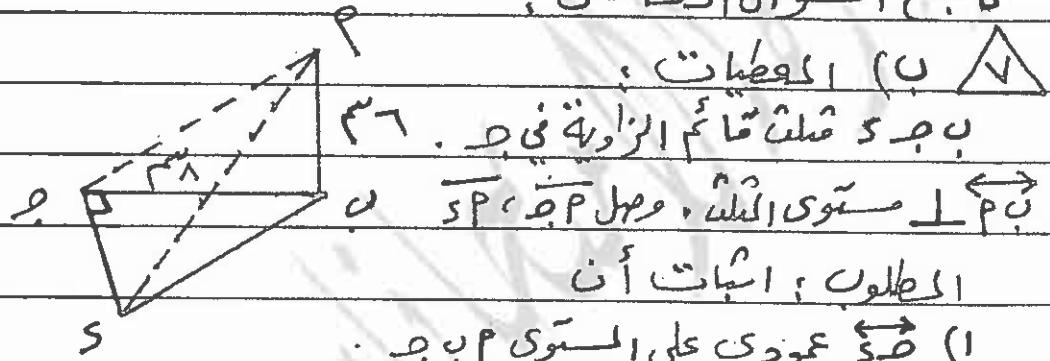 ٧ ب) المعطيات :
ب جـ د مثلث قائم الزاوية في جـ .
ب م ⊥ مستوى المثلث ، وصل م جـ ، م د
المطلوب : اثبات أن
١) جـ د عمودي على المستوى م ب جـ .
م
٦م
٨م
جـ
ب
د